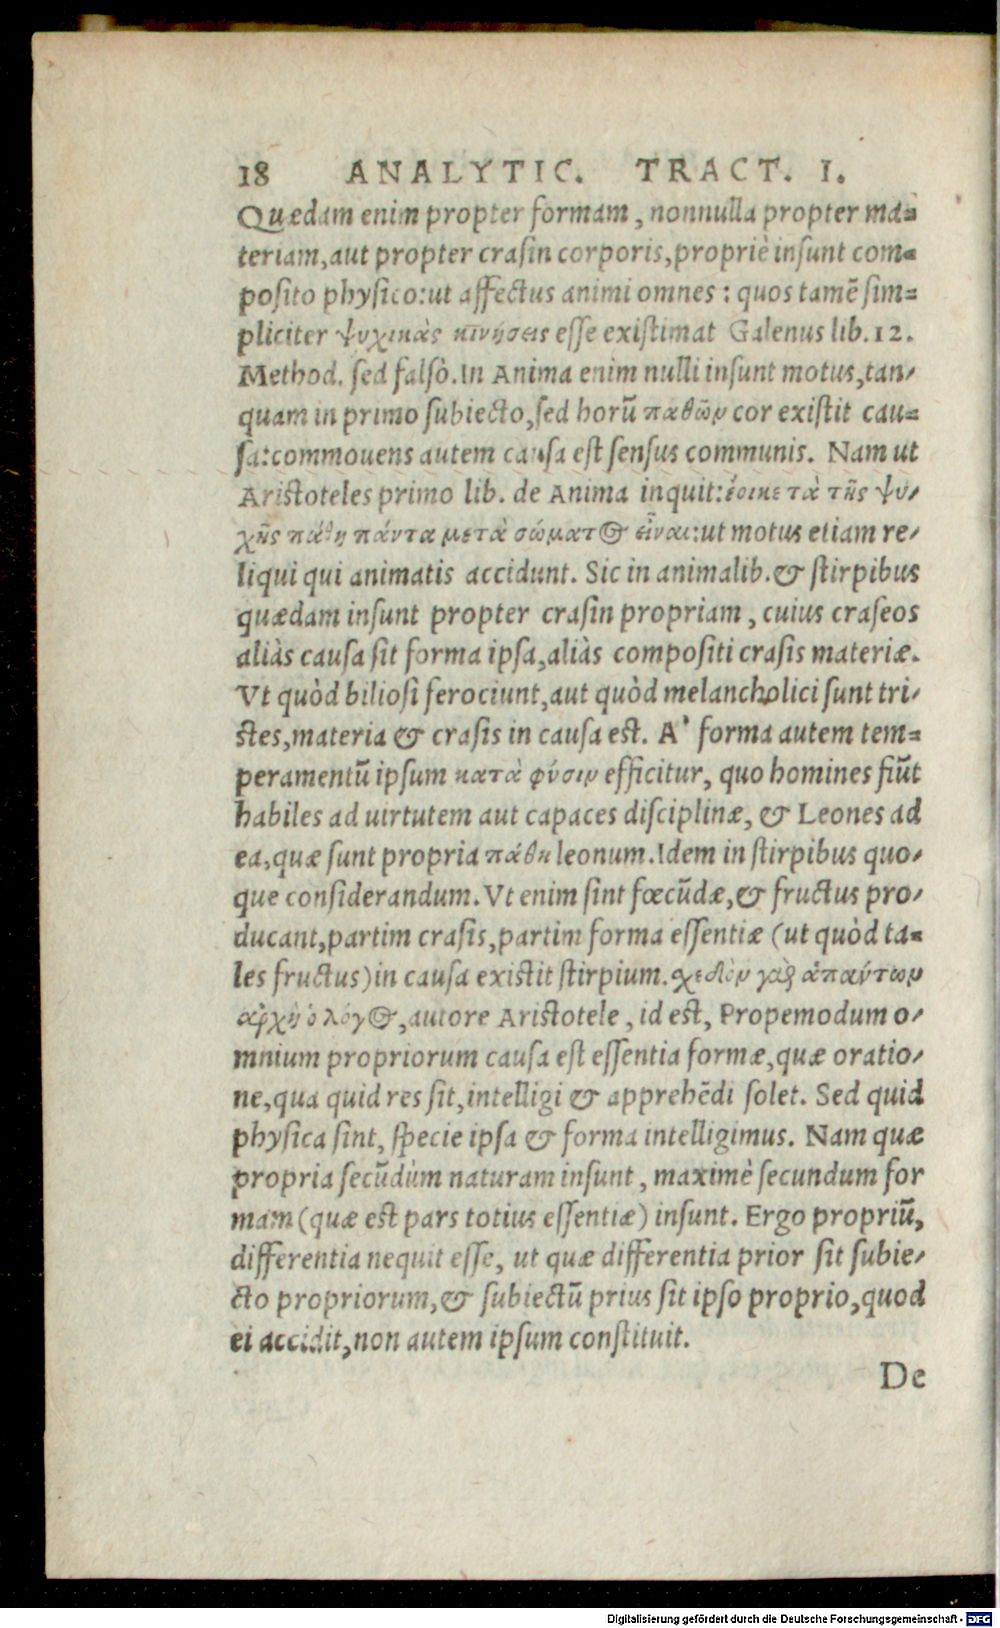 18 ANALYTIC. TRACT. I.
Quædam enim propter formam, nonnulla propter ma-
teriam, aut propter crasin corporis, propriè insunt com-
posito physico: ut affectus animi omnes: quos tamẽ sim-
pliciter ψυχικὰς κινήσεις esse existimat Galenus lib. 12.
Method. sed falsò. In Anima enim nulli insunt motus, tan-
quam in primo subiecto, sed horũ παθῶν cor existit cau-
sa: commouens autem causa est sensus communis. Nam ut
Aristoteles primo lib. de Anima inquit: ἔοικε τὰ τῆς ψυ-
χῆς πάθη πάντα μετὰ σώματος εἶναι: ut motus etiam re-
liqui qui animatis accidunt. Sic in animalib. & stirpibus
quædam insunt propter crasin propriam, cuius craseos
aliàs causa sit forma ipsa, aliàs compositi crasis materiæ.
Vt quòd biliosi ferociunt, aut quòd melancholici sunt tri-
stes, materia & crasis in causa est. A' forma autem tem-
peramentũ ipsum κατὰ φύσιν efficitur, quo homines fiũt
habiles ad uirtutem aut capaces disciplinæ, & Leones ad
ea, quæ sunt propria πάθη leonum. Idem in stirpibus quo-
que considerandum. Vt enim sint fœcũdæ, & fructus pro-
ducant, partim crasis, partim forma essentiæ (ut quòd ta-
les fructus) in causa existit stirpium. σχεδὸν γὰρ ἁπάντων
ἀρχὴ ὁ λόγος, autore Aristotele, id est, Propemodum o-
mnium propriorum causa est essentia formæ, quæ oratio-
ne, qua quid res sit, intelligi & apprehẽdi solet. Sed quid
physica sint, specie ipsa & forma intelligimus. Nam quæ
propria secũdùm naturam insunt, maximè secundum for
mam (quæ est pars totius essentiæ) insunt. Ergo propriũ,
differentia nequit esse, ut quæ differentia prior sit subie-
cto propriorum, & subiectũ prius sit ipso proprio, quod
ei accidit, non autem ipsum constituit.
De
Digitalisierung gefördert durch die Deutsche Forschungsgemeinschaft - DFG